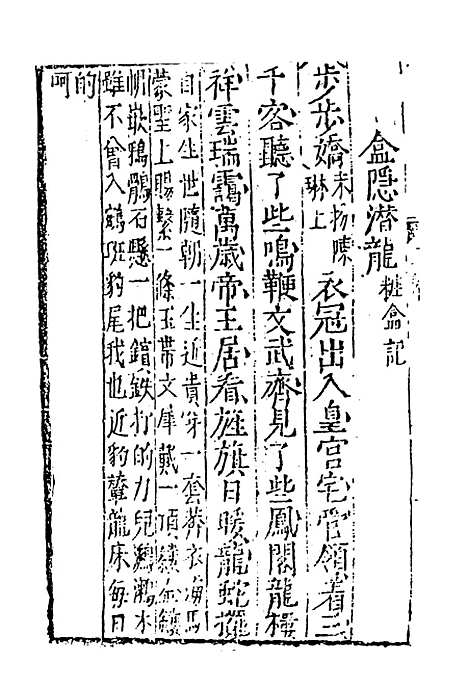 盒隱潛龍 粧盒記
步步嬌 末扮陳琳上 衣冠出入皇宮宅管領着三
千客聽了些鳴鞭文武齊見了些鳳閣龍樓
祥雲瑞靄萬歲帝王居看旌旗日暖龍蛇擺
自家生世隨朝一生近貴穿一套莽衣海馬
蒙聖上賜繫一條玉帶文犀戴一頂嵌金鑲
帽嵌鴉鶻石懸一把鑌鉄打的刀兒鸂鶒木
雖不曾入鵷班豹尾我也近豹輦龍床每日
的
呵